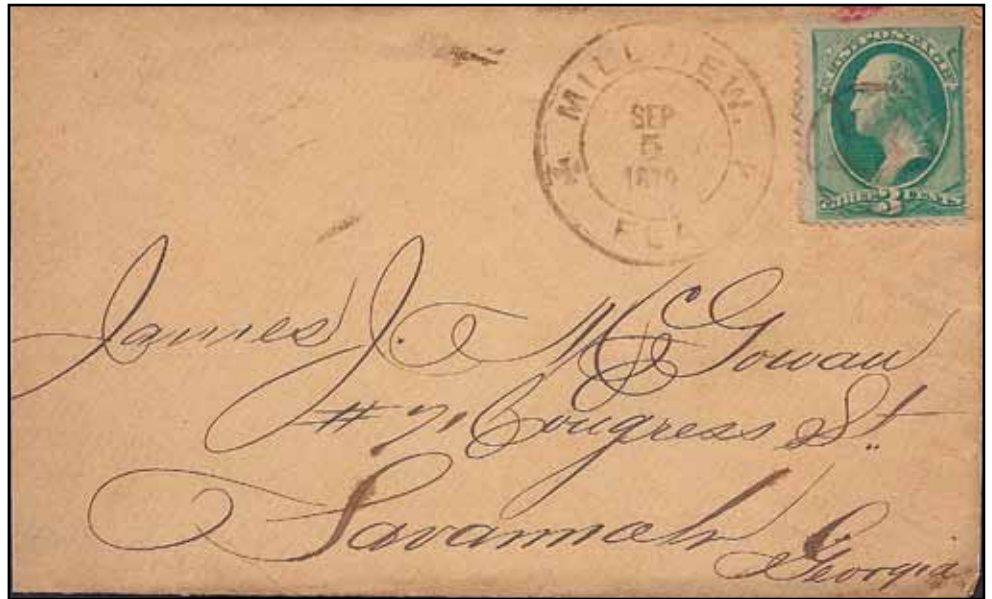 MILL VIEW.
SEP
5
1879
FLA
U.S. POSTAGE
THREE 3 CENTS
James J. McGowan
# 71 Congress St.
Savannah
Georgia